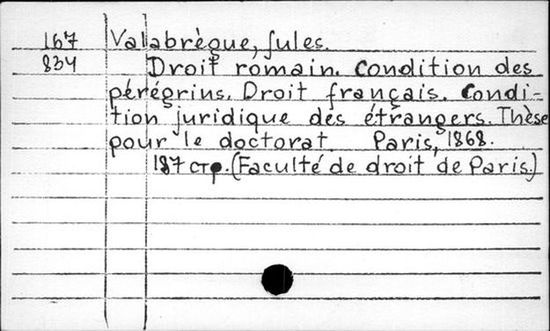 167 Valabrègue, Jules.
834 Droit romain. Condition des
pérégrins. Droit français. Condi-
tion juridique des étrangers. Thèse
pour le doctorat. Paris, 1868.
187 стр. (Faculté de droit de Paris.)